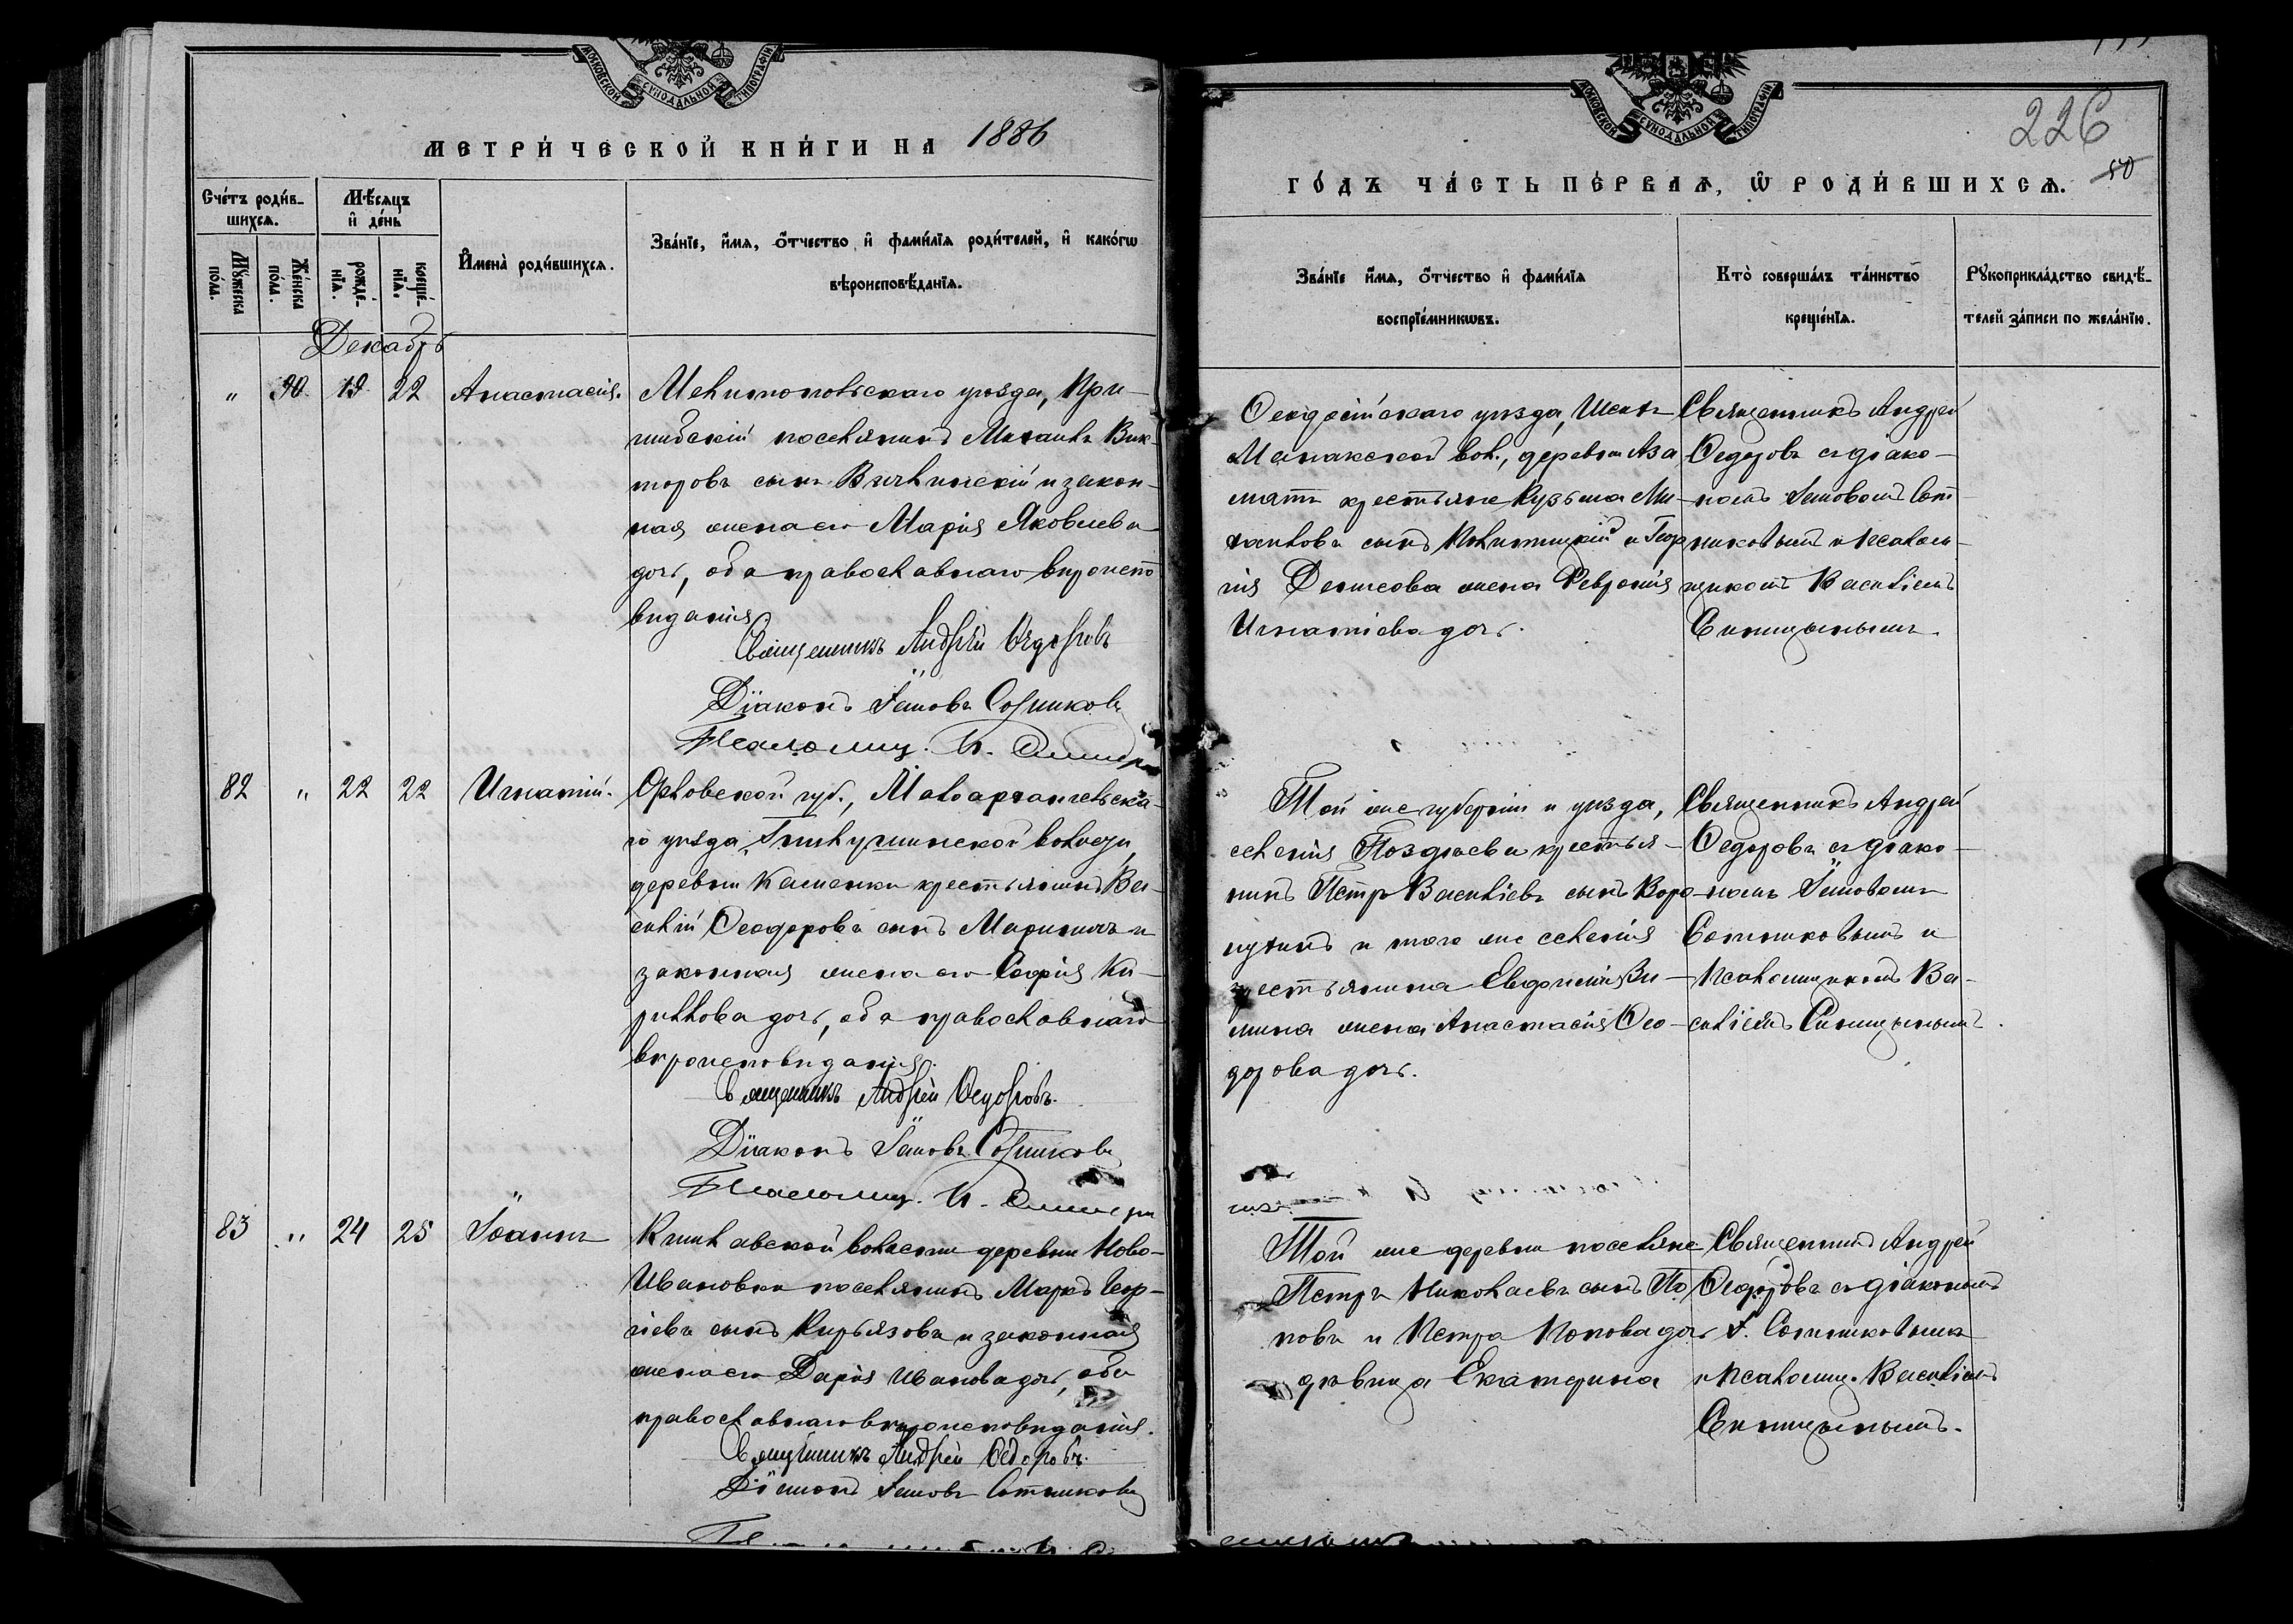 МОСКОВСКОЙ СѴНОДАЛЬНОЙ ТИПОГРАФІИ
МЕТРИ́ЧЕСКОЙ КНИ́ГИ НА 1886
Сче́тъ роди́в-
шихся.
Мѣ́сяцъ
и҆ де́нь
Мꙋ́жеска
по́ла.
Же́нска
по́ла.
рожде́-
нїѧ.
креще́-
нїѧ.
И҆мена̀ роди́вшихсѧ.
Зва́нїе, и҆́мѧ, ѻ҆́тчество и҆ фами́лїѧ роди́телей, и҆ како́гѡ
вѣроисповѣ́данїѧ.
Декабрь
" 90. 19 22 Анастасія.
Мелитопольскаго уѣзда, При-
шибскій поселянинъ Михаилъ Вик-
торовъ сынъ и закон-
ная жена его Марія Яковлева
дочь, оба православнаго вѣроиспо
вѣданія
Священникъ Андрей Ѳедоровъ
Діаконъ Іаковъ Сотниковъ
Псаломщ.
82 " 22 22 Игнатій.
Орловской губ., Малоархангельска-
го уѣзда, волости,
деревни Каменки крестьянинъ Ва-
силій Ѳеодоровъ сынъ и
законная жена его Софія Ки-
риллова дочь, оба православнаго
вѣроисповѣданія.
Священникъ Андрей Ѳедоровъ.
Діаконъ Іаковъ Сотниковъ
Псаломщ.
83 " 24 25 Іоаннъ
волости деревни Ново-
Ивановки поселянинъ Марко Геор-
гіевъ сынъ Кирьязовъ и законная
жена его Дарія Иванова дочь, оба
православнаго вѣроисповѣданія.
Священникъ Андрей Ѳедоровъ.
Діаконъ Іаковъ Сотниковъ
МОСКОВСКОЙ СѴНОДАЛЬНОЙ ТИПОГРАФІИ
226
50
ГО́ДЪ ЧА́СТЬ ПЕ́РВАѦ, Ѽ РОДИ́ВШИХСѦ.
Зва́нїе и҆́мѧ, ѻ҆́тчество и҆ фами́лїѧ
воспрїе́мникѡвъ.
Кто̀ соверша́лъ та́инство
креще́нїѧ.
Рꙋкоприкла́дство свидѣ́-
телей за́писи по жела́нїю.
Ѳеодосійскаго уѣзда, Шейхъ
Монакской вол., деревни Аза
матъ крестьяне Кузьма Ми-
хаиловъ сынъ и Геор
гія Денисова жена Февронія
Игнатіева дочь.
Священникъ Андрей
Ѳедоровъ съ діако-
номъ Іаковомъ Сот-
никовымъ и псалом-
щикомъ Василіемъ
Синицынымъ.
Той же губерніи и уѣзда,
селенія крестья-
нинъ Петръ Василіевъ сынъ
и того же селенія
крестьянина
жена Анастасія Ѳео-
дорова дочь.
Священникъ Андрей
Ѳедоровъ съ діако-
номъ Іаковомъ
Сотниковымъ и
псаломщикомъ Ва-
силіемъ Синицынымъ.
Той же деревни поселяне
Петръ Николаевъ сынъ По
повъ и Петра Попова дочь
дѣвица Екатерина
Священникъ Андрей
Ѳедоровъ съ діакономъ
І. Сотниковымъ
и псаломщ. Василіемъ
Синицынымъ.